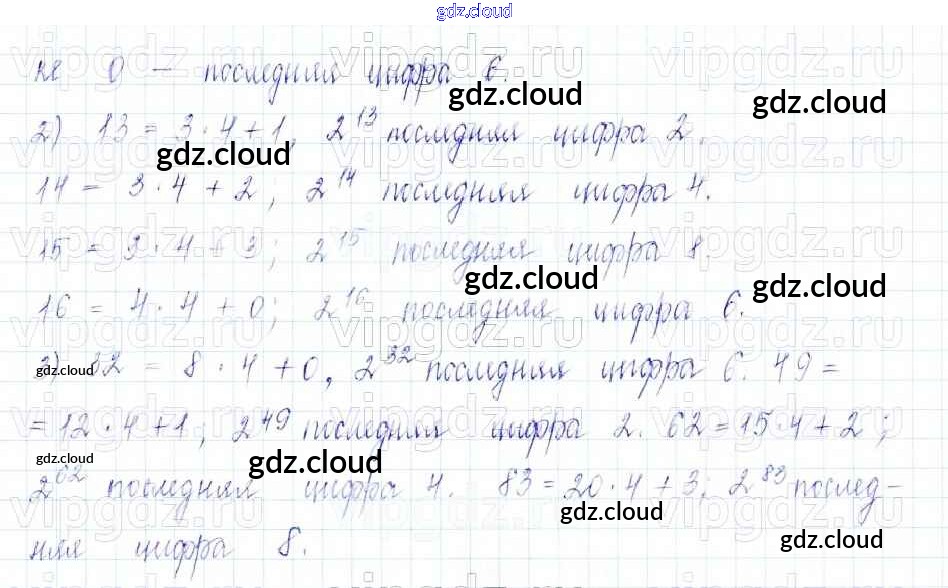 gdz.cloud
ке 0 – последняя цифра 6.
gdz.cloud gdz.cloud
2) 13 = 3 · 4 + 1, 2¹³ последняя цифра 2.
gdz.cloud
14 = 3 · 4 + 2; 2¹⁴ последняя цифра 4.
15 = 3 · 4 + 3; 2¹⁵ последняя цифра 8.
gdz.cloud gdz.cloud
16 = 4 · 4 + 0; 2¹⁶ последняя цифра 6.
gdz.cloud
3) 32 = 8 · 4 + 0, 2³² последняя цифра 6. 49 =
= 12 · 4 + 1; 2⁴⁹ последняя цифра 2. 62 = 15 · 4 + 2;
gdz.cloud gdz.cloud
2⁶² последняя цифра 4. 83 = 20 · 4 + 3; 2⁸³ послед-
gdz.cloud
няя цифра 8.
gdz.cloud